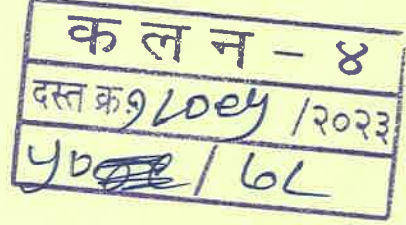 क ल न - ४
दस्त क्र. १८०९५ /२०२३
५० / ७८